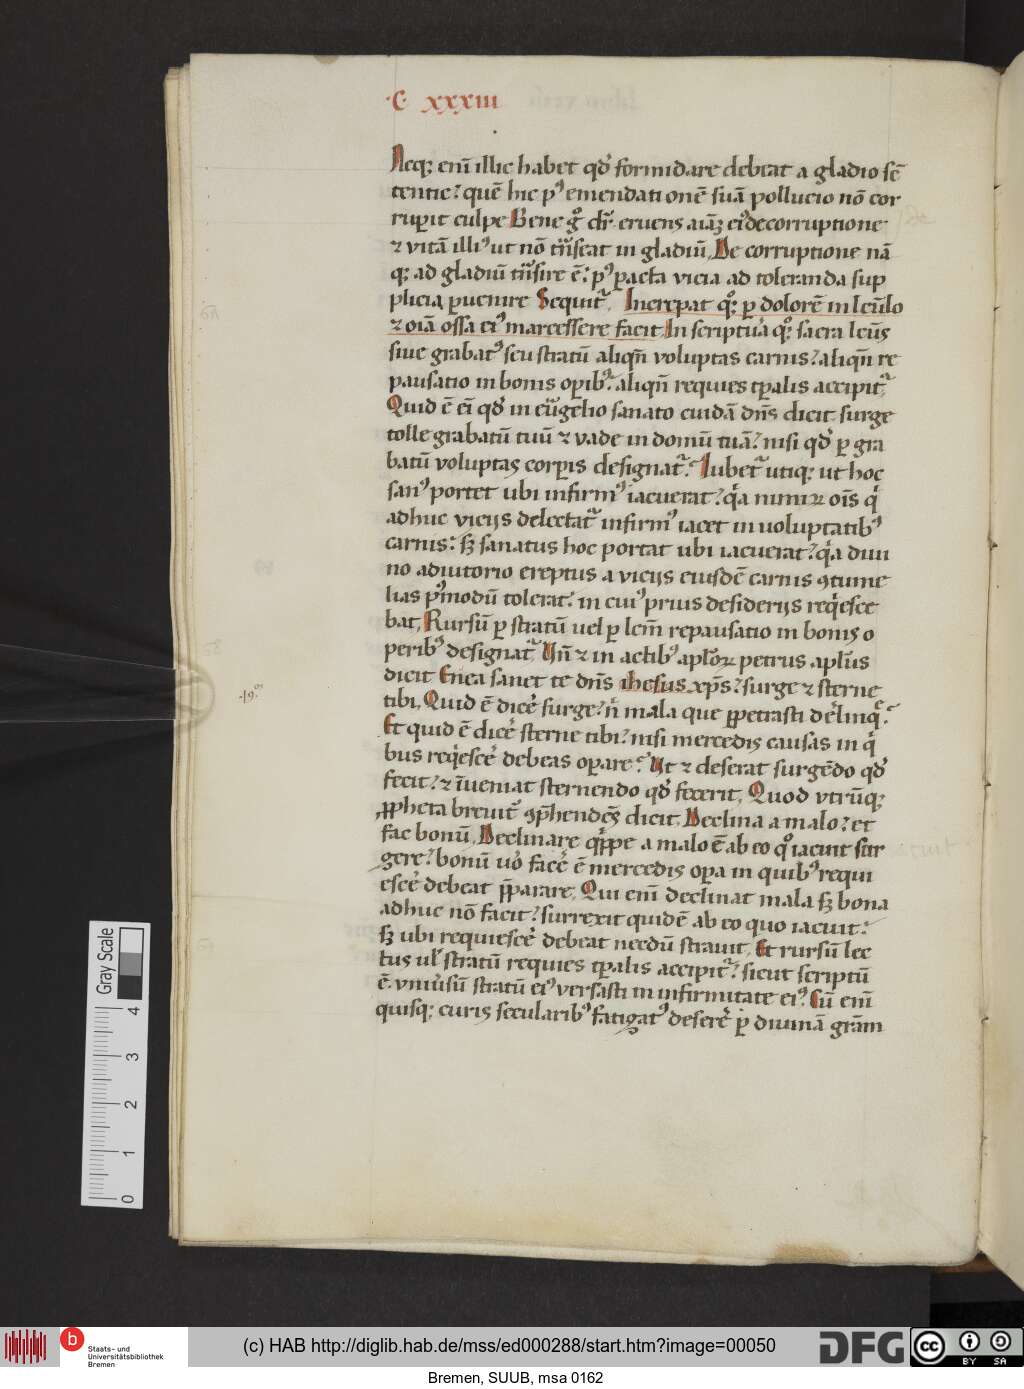 C xxxiii
Neq; enī illic habet qd' formidare debeat a gladio sē
tentie? quē hic pꝰ emendationē suā pollucio nō cor
rupit culpe Bene gͦ dr̄ eruens aīaꝫ eiꝰ de corruptione
⁊ vitā illiꝰ ut nō trāseat in gladiū, De corruptione nā
q; ad gladiū trāsire ē? pꝰ pacta vicia ad toleranda sup
plicia puenire Sequit᷑, Increpat qͦ; p dolorē in lectulo
⁊ oīa ossa eiꝰ marcessere facit, In scriptura qͦ; sacra lectꝰ
siue grabatꝰ seu stratū aliqn̄ voluptas carnis? aliqn̄ re
pausatio in bonis opibꝰ? aliqn̄ requies tpalis accipit᷑,
Quid ē ei qd' in euāgelio sanato cuidā dn̄s dicit surge
tolle grabatū tuū ⁊ vade in domū tuā? nisi qd' p gra
batū voluptas corpis designat᷑? Iubet᷑ utiq; ut hoc
sanꝰ portet ubi infirmꝰ iacuerat? qͥa nimiꝝ oīs qͥ
adhuc vicijs delectat᷑ infirmꝰ iacet in uoluptatibꝰ
carnis? sꝫ sanatus hoc portat ubi iacuerat? qͥa diui
no adiutorio ereptus a vicijs eiusdē carnis ꝯtume
lias pꝰmodū tolerat? in cuiꝰ prius desiderijs reqͥesce
bat, Rursū p stratū uel p lcm̄ repausatio in bonis o
peribꝰ designat᷑ Vn̄ ⁊ in actibꝰ aplōꝝ petrus aplūs
dicit Enea sanet te dn̄s ihesus xp̄s? surge ⁊ sterne
tibi, Quid ē dicē surge? n̄ mala que ppetrasti delinq̄?
Et quid ē dicē sterne tibi? nisi mercedis causas in qͥ
bus reqͥescē debeas opare? Vt ⁊ deserat surgēdo qd'
fecit? ⁊ īueniat sternendo qd' fecerit, Quod vtrūq;
ppheta breuit᷑ ꝯp̄hendēs dicit, Declina a malo? et
fac bonū, Declinare qͥppe a malo ē ab eo qͦ iacuit sur
gere? bonū uͦo facē ē mercedis opa in quibꝰ requi
escē debeat p̄parare, Qui enī declinat mala sꝫ bona
adhuc nō facit? surrexit quidē ab eo quo iacuit?
sꝫ ubi requiescē debeat necdū strauit, Et rursū lec
tus ul' stratū requies tpalis accipit᷑? sicut scriptū
ē, vniūsū stratū eiꝰ versasti in infirmitate eiꝰ? Cū enī
quisq; curis secularibꝰ fatigatꝰ deserē p diuinā grām
Gray Scale
0 1 2 3 4
b
Staats- und
Universitätsbibliothek
Bremen
(c) HAB http://diglib.hab.de/mss/ed000288/start.htm?image=00050
DFG
cc BY SA
Bremen, SUUB, msa 0162